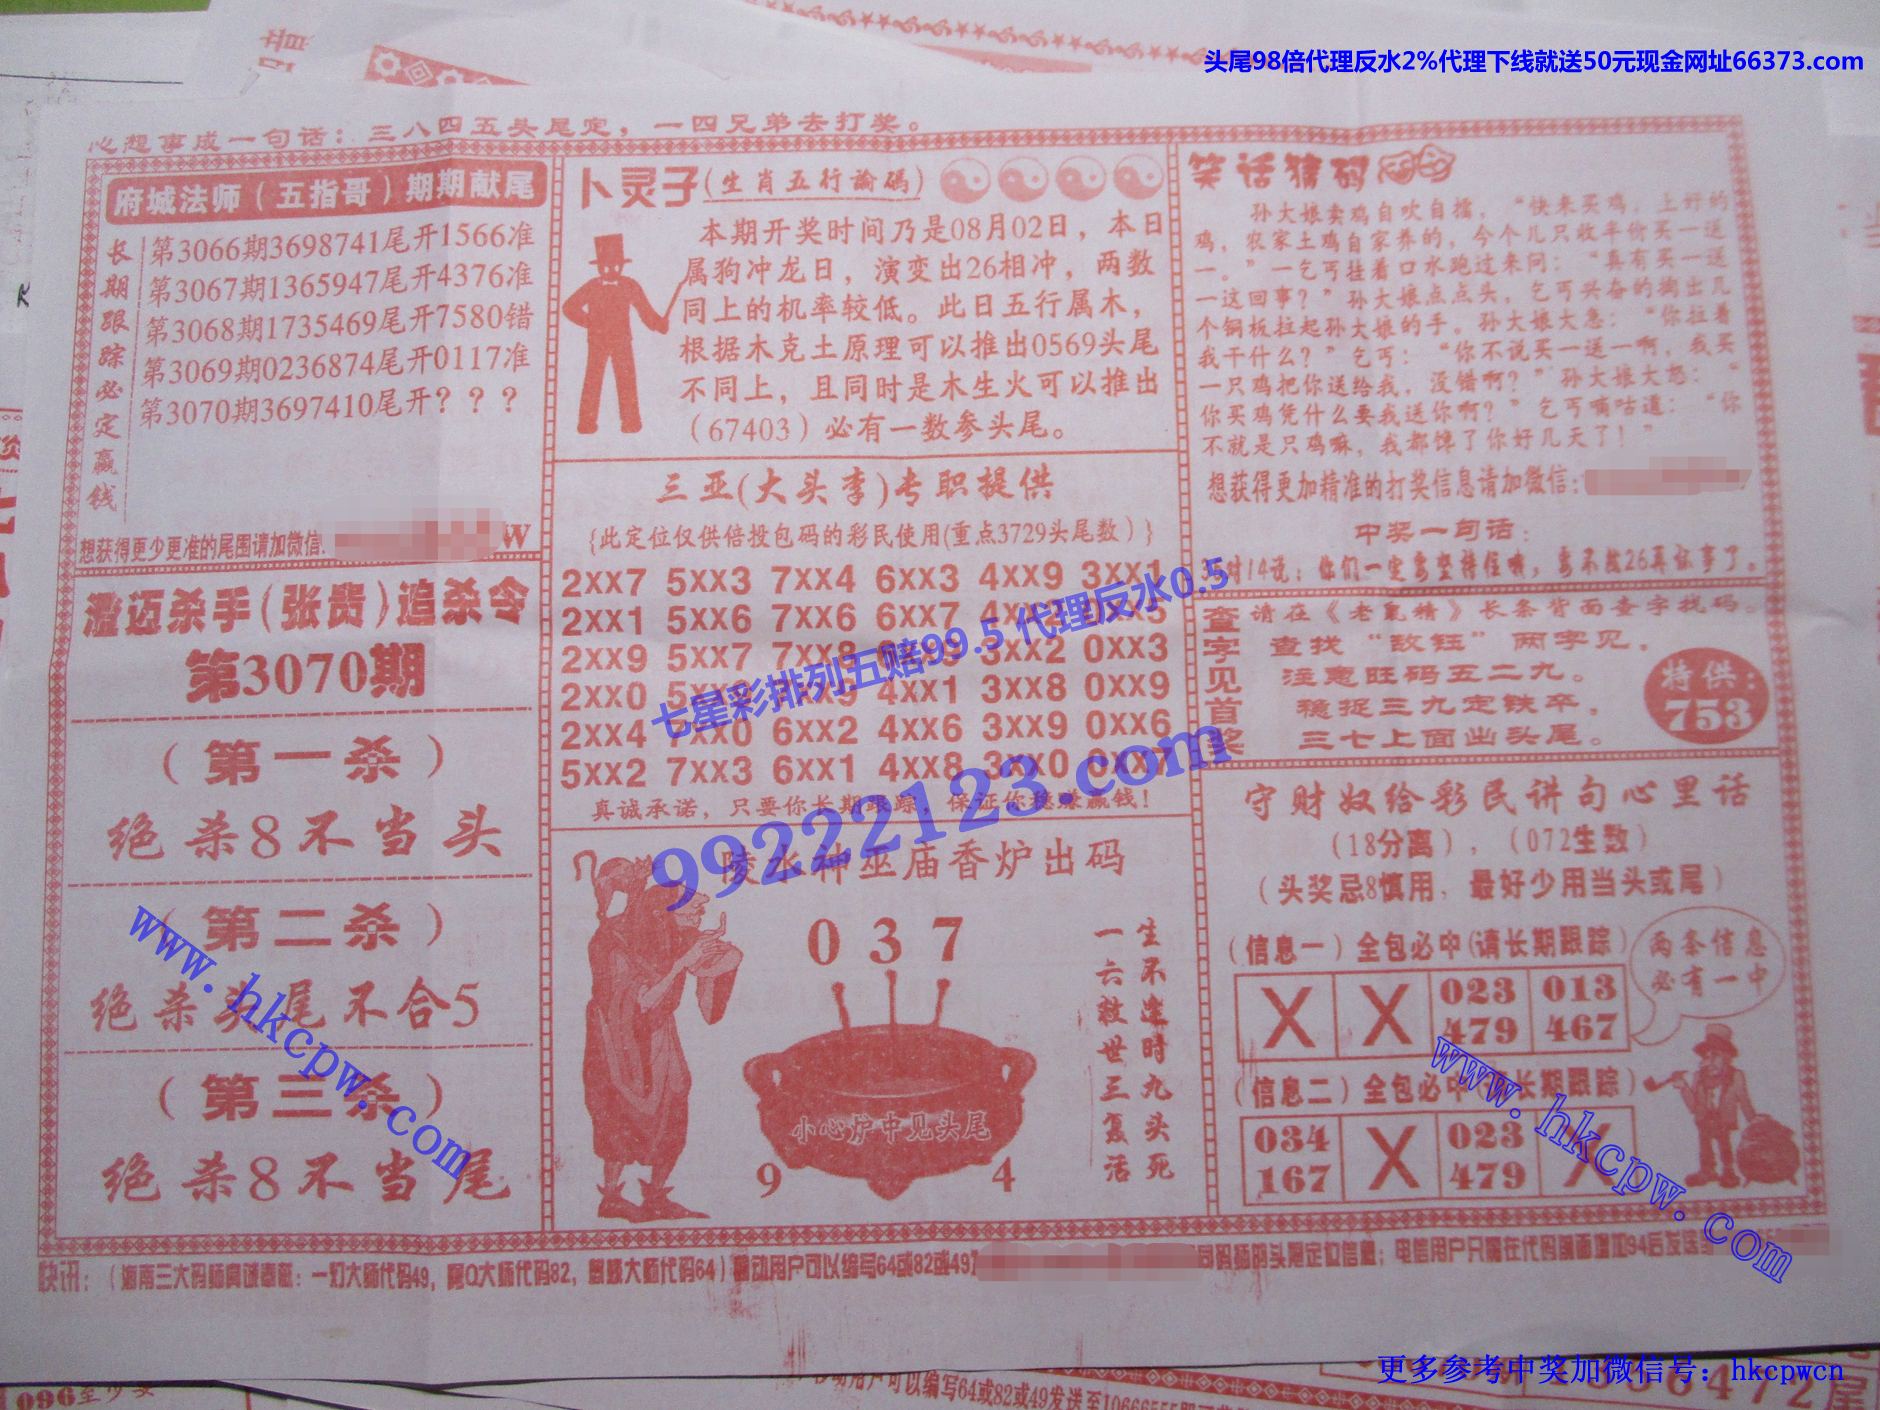 头尾98倍代理反水2%代理下线就送50元现金网址66373.com
心想事成一句话：三八四五头尾定，一四兄弟去打奖。
府城法师（五指哥）期期献尾
长期跟踪必定赢钱
第3066期3698741尾开1566准
第3067期1365947尾开4376准
第3068期1735469尾开7580错
第3069期0236874尾开0117准
第3070期3697410尾开？？？
想获得更少更准的尾围请加微信:
W
澄迈杀手（张贵）追杀令
第3070期
（第一杀）
绝杀8不当头
（第二杀）
绝杀头尾不合5
（第三杀）
绝杀8不当尾
卜灵子(生肖五行論碼)
本期开奖时间乃是08月02日，本日
属狗冲龙日，演变出26相冲，两数
同上的机率较低。此日五行属木，
根据木克土原理可以推出0569头尾
不同上，且同时是木生火可以推出
（67403）必有一数参头尾。
三亚(大头李)专职提供
{此定位仅供倍投包码的彩民使用(重点3729头尾数）}
2XX7 5XX3 7XX4 6XX3 4XX9 3XX1
2XX1 5XX6 7XX6 6XX7 4XX2 0XX5
2XX9 5XX7 7XX8 3XX2 0XX3
2XX0 4XX1 3XX8 0XX9
2XX4 7XX0 6XX2 4XX6 3XX9 0XX6
5XX2 7XX3 6XX1 4XX8 3XX0 0XX7
真诚承诺，只要你长期跟踪，保证你稳赚赢钱！
陵水神巫庙香炉出码
0 3 7
小心炉中见头尾
9 4
生不逢时九头死
一六救世三复活
笑话猜码
孙大娘卖鸡自吹自擂，“快来买鸡，上好的
鸡，农家土鸡自家养的，今个儿只收半价买一送
一。”一乞丐挂着口水跑过来问：“真有买一送
一这回事？”孙大娘点点头，乞丐兴奋的掏出几
个铜板拉起孙大娘的手。孙大娘大急：“你拉着
我干什么？”乞丐：“你不说买一送一啊，我买
一只鸡把你送给我，没错啊？”孙大娘大怒：“
你买鸡凭什么要我送你啊？”乞丐嘀咕道：“你
不就是只鸡嘛，我都馋了你好几天了！”
想获得更加精准的打奖信息请加微信：
中奖一句话：
35对14说：你们一定要坚持住哦，要不然26再惊事了。
查字见首奖
请在《老鼠精》长条背面查字找码
查找“敌钰”两字见，
注意旺码五二九。
稳捉三九定铁卒，
三七上面出头尾。
特供：
753
守财奴给彩民讲句心里话
（18分离），（072生数）
（头奖忌8慎用，最好少用当头或尾）
（信息一）全包必中(请长期跟踪)
X X 023 013
479 467
两条信息
必有一中
（信息二）全包必中 长期跟踪）
034 X 023 X
167 479
快讯：（海南三大码师真诚奉献：一灯大师代码49，阿Q大师代码82， 大师代码64）移动用户可以编写64或82或49
码师的头尾定位信息；电信用户只需在代码前面增加94后发送
七星彩排列五赔99.5 代理反水0.5
99222123.com
www.hkcpw.com
www.hkcpw.com
更多参考中奖加微信号：hkcpwcn
096至少
用户可以编写64或82或49发送至10666555
6472尾